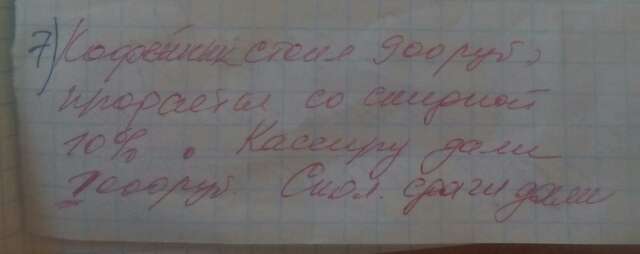 7) Кофейник стоил 900 руб,
продается со скидкой
10%. Кассиру дали
1000 руб. Скол. сдачи дали